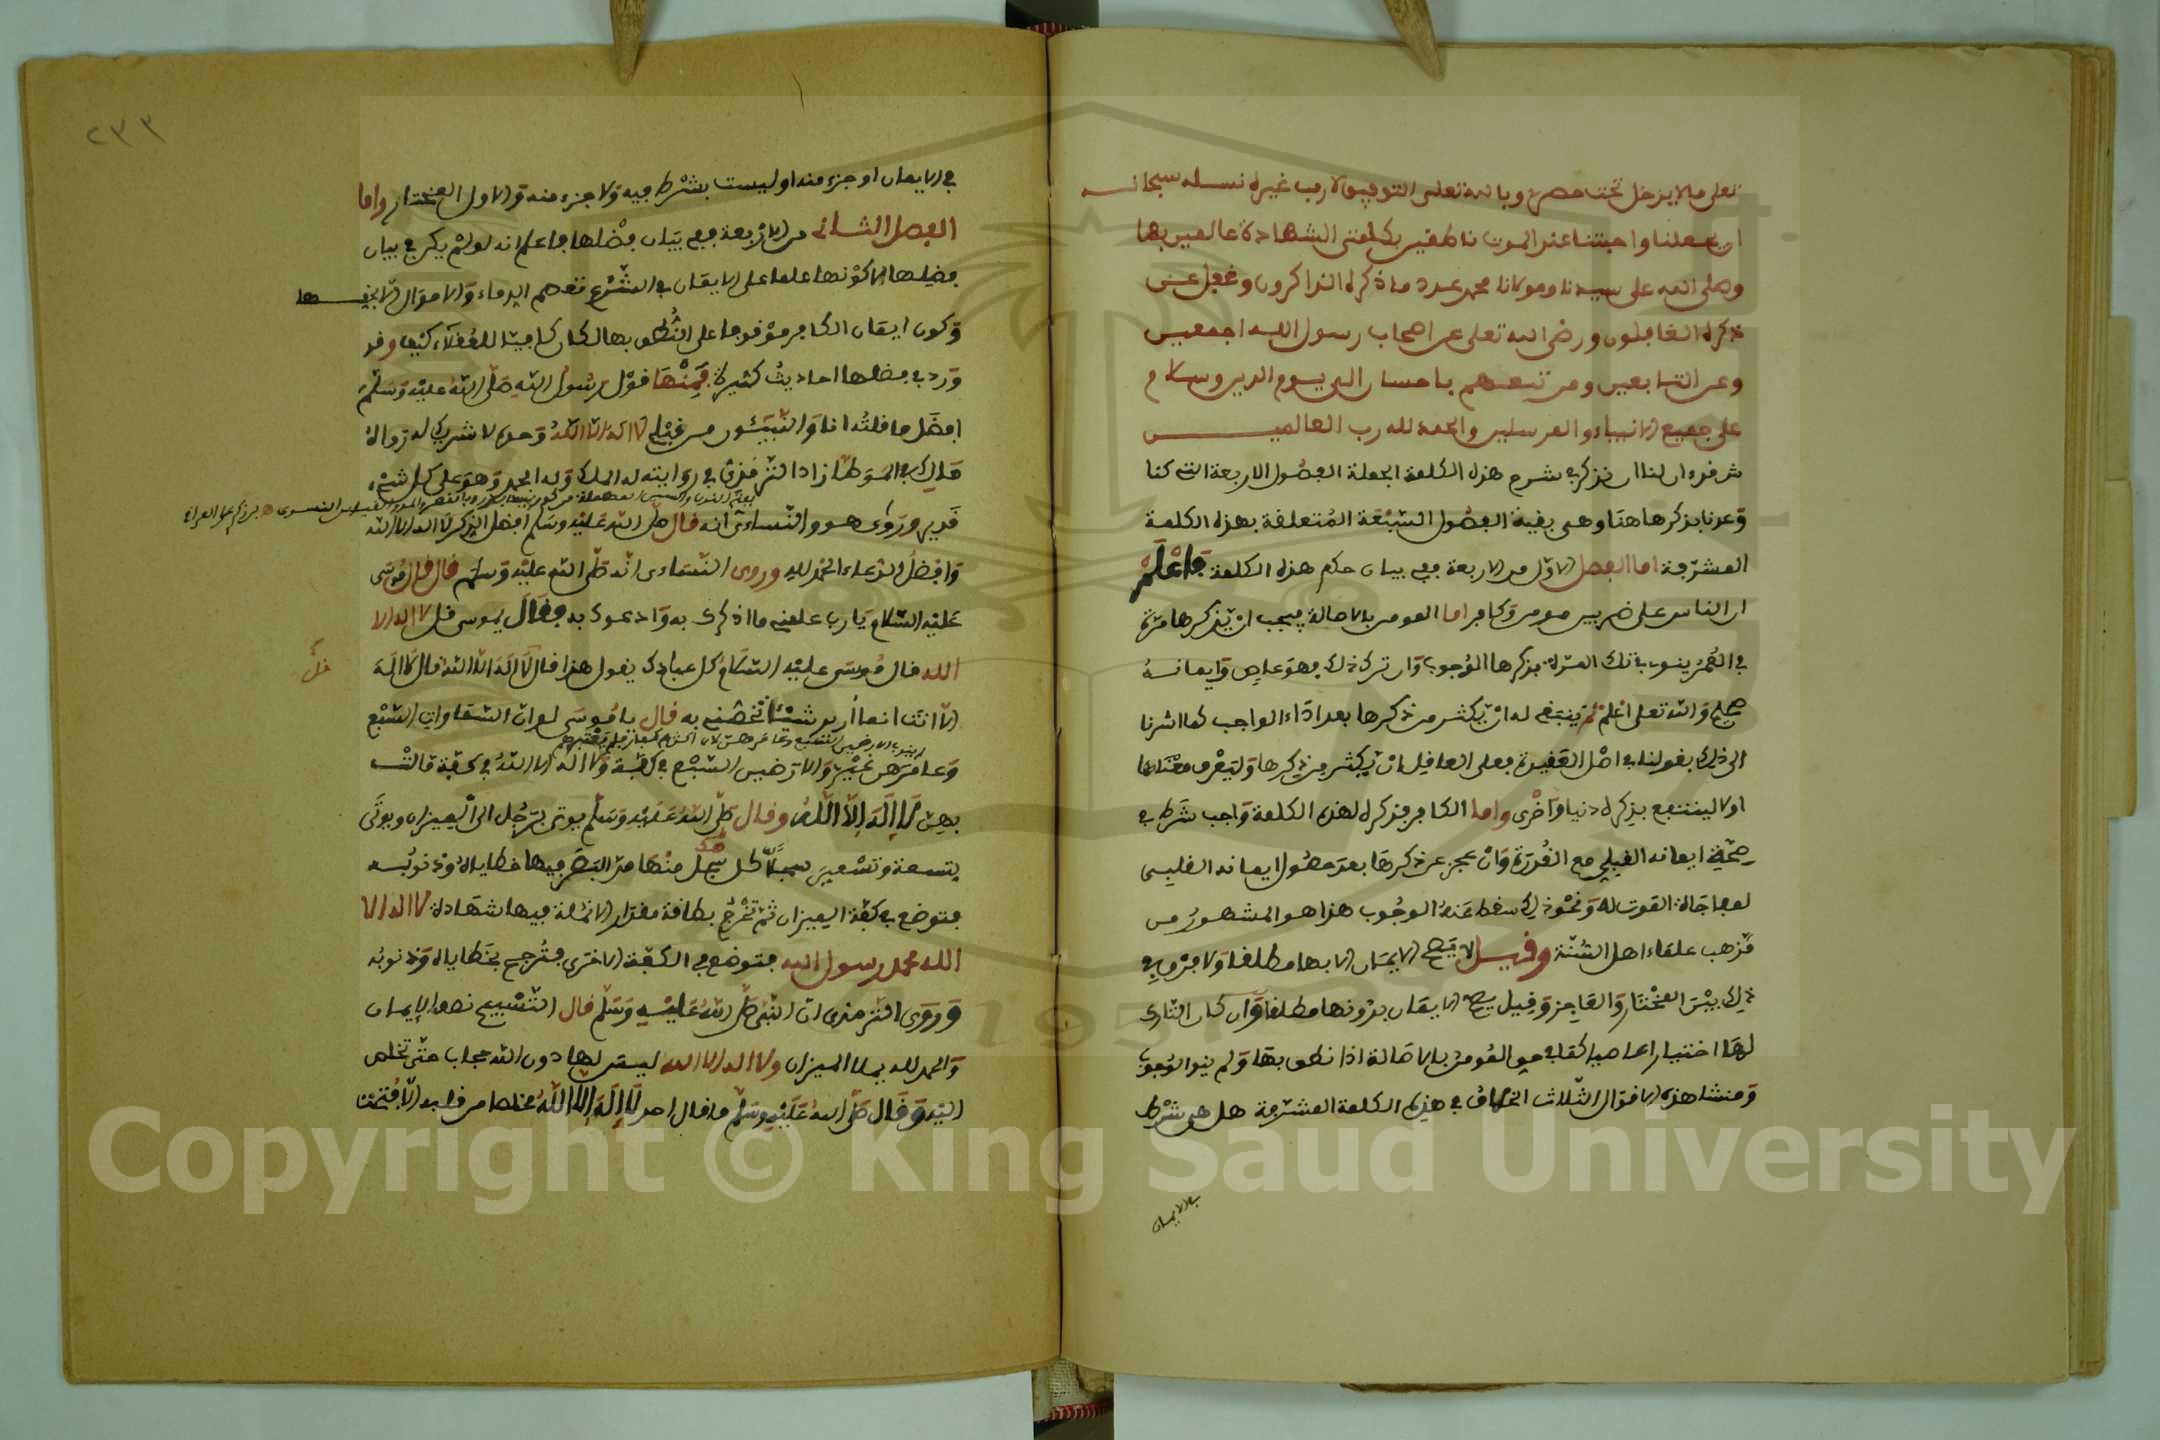 تعلى مالا يدخل تحت حصر وبالله تعلى التوفيق لا رب غيره نسله سبحانه
ان يجعلنا واحبتنا عند الموت ناطقين بكلمتي الشهادة عالمين بها
وصلى الله على سيدنا ومولانا محمد عدد ما ذكره الذاكرون وغفل عن
ذكره الغافلون ورضي الله تعلى عن اصحاب رسول الله اجمعين
وعن التابعين ومن تبعهم باحسان الى يوم الدين وسلام
على جميع الانبياء والمرسلين والحمد لله رب العالمين
ش قوله ان لنا ان نذكر في شرح هذه الكلمة الجملة الفصول الاربعة التي كنا
وعدنا بذكرها هنا وهي بقية الفصول السبعة المتعلقة بهذه الكلمة
المشرفة اما الفصل الاول من الاربعة ففي بيان حكم هذه الكلمة فاعلم
ان الناس على ضربين مومن وكافر اما المومن بالاصالة فيجب ان يذكرها مرة
في العمر ينوي في تلك المرة بذكرها الوجوب وان ترك ذلك فهو عاص وايمانه
صحيح والله تعلى اعلم ثم ينبغي له ان يكثر من ذكرها بعد اداء الواجب كما اشرنا
الى ذلك بقولنا في اصل العقيدة فعلى العاقل ان يكثر من ذكرها وليعرف معناها
اولا لينتفع بذكره دنيا واخرى واما الكافر فذكره لهذه الكلمة واجب شرط في
صحة ايمانه القلبي مع القدرة وان عجز عن ذكرها بعد حصول ايمانه القلبي
لمفاجاة الموت له ونحو ذلك سقط عنه الوجوب هذا هو المشهور من
مذهب علماء اهل السنة وقيل لا يصح الايمان الا بها مطلقا ولا فرق في
ذلك بين المختار والعاجز وقيل يصح الايمان بدونها مطلقا وان كان التارك
لها اختيارا عاصيا كما في حق المومن بالاصالة اذا نطق بها ولم ينو الوجوب
ومنشا هذه الاقوال الثلاث الخلاف في هذه الكلمة المشرفة هل هي شرط
في الايمان
٢٣٣
في الايمان او جزء منه او ليست بشرط فيه ولا جزء منه والاول المختار واما
الفصل الثاني من الاربعة ففي بيان فضلها فاعلم انه لو لم يكن في بيان
فضلها الا كونها علما على الايمان في الشرع تعصم الدماء والاموال الا بحقها
وكون ايمان الكافر موقوفا على النطق بها لكان كافيا للعقلاء كيف وقد
ورد في فضلها احاديث كثيرة فمنها قول رسول الله صلى الله عليه وسلم
افضل ما قلته انا والنبيئون من قبلي لا اله الا الله وحده لا شريك له رواه
مالك في الموطا زاد الترمذي في روايته له الملك وله الحمد وهو على كل شيء
قدير وروى هو والنساءي انه قال صلى الله عليه وسلم افضل الذكر لا اله الا الله
وافضل الدعاء الحمد لله وروى النساءي انه صلى الله عليه وسلم قال قال موسى
عليه السلام يا رب علمني ما اذكرك به وادعوك به فقال يموسى قل لا اله الا
الله قال موسى عليه السلام كل عبادك يقول هذا قال لا اله الا الله قال لا اله
الا انت انما اريد شيئا تخصني به قال يا موسى لو ان السماوات السبع
وعامرهن غيري والارضين السبع في كفة ولا اله الا الله في كفة مالت
بهن لا اله الا الله وقال صلى الله عليه وسلم يوتى برجل الى الميزان ويوتى
بتسعة وتسعين سجلا كل سجل منها مد البصر فيها خطاياه وذنوبه
فتوضع في كفة الميزان ثم تخرج بطاقة مقدار الانملة فيها شهادة لا اله الا
الله محمد رسول الله فتوضع في الكفة الاخرى فترجح بخطاياه وذنوبه
وروى الترمذي ان النبي صلى الله عليه وسلم قال التسبيح نصف الايمان
والحمد لله يملا الميزان ولا اله الا الله ليس لها دون الله حجاب حتى تخلص
اليه وقال صلى الله عليه وسلم ما قال احد لا اله الا الله مخلصا من قلبه الا فتحت
Copyright © King Saud University
1957